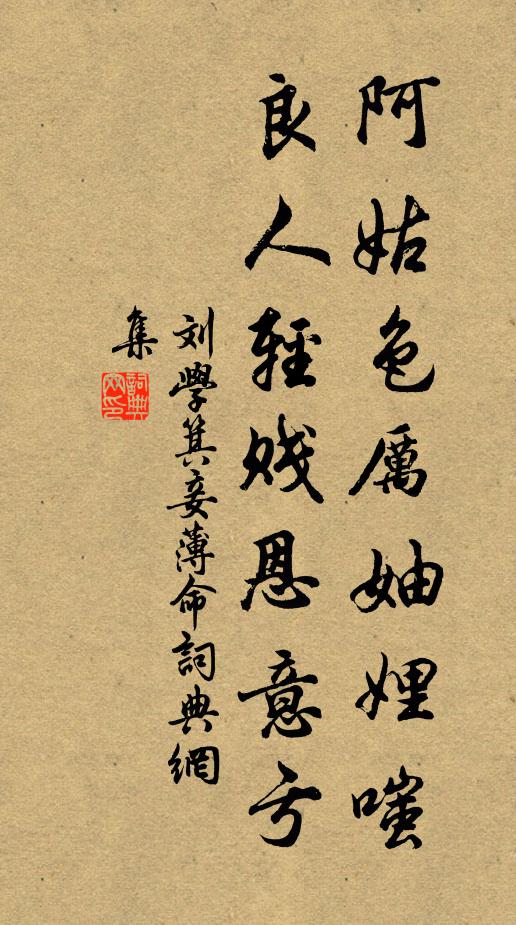 阿姑色厲妯娌嗤
良人輕賤恩意亏
刘學箕妾薄命詞典網
集
詞典